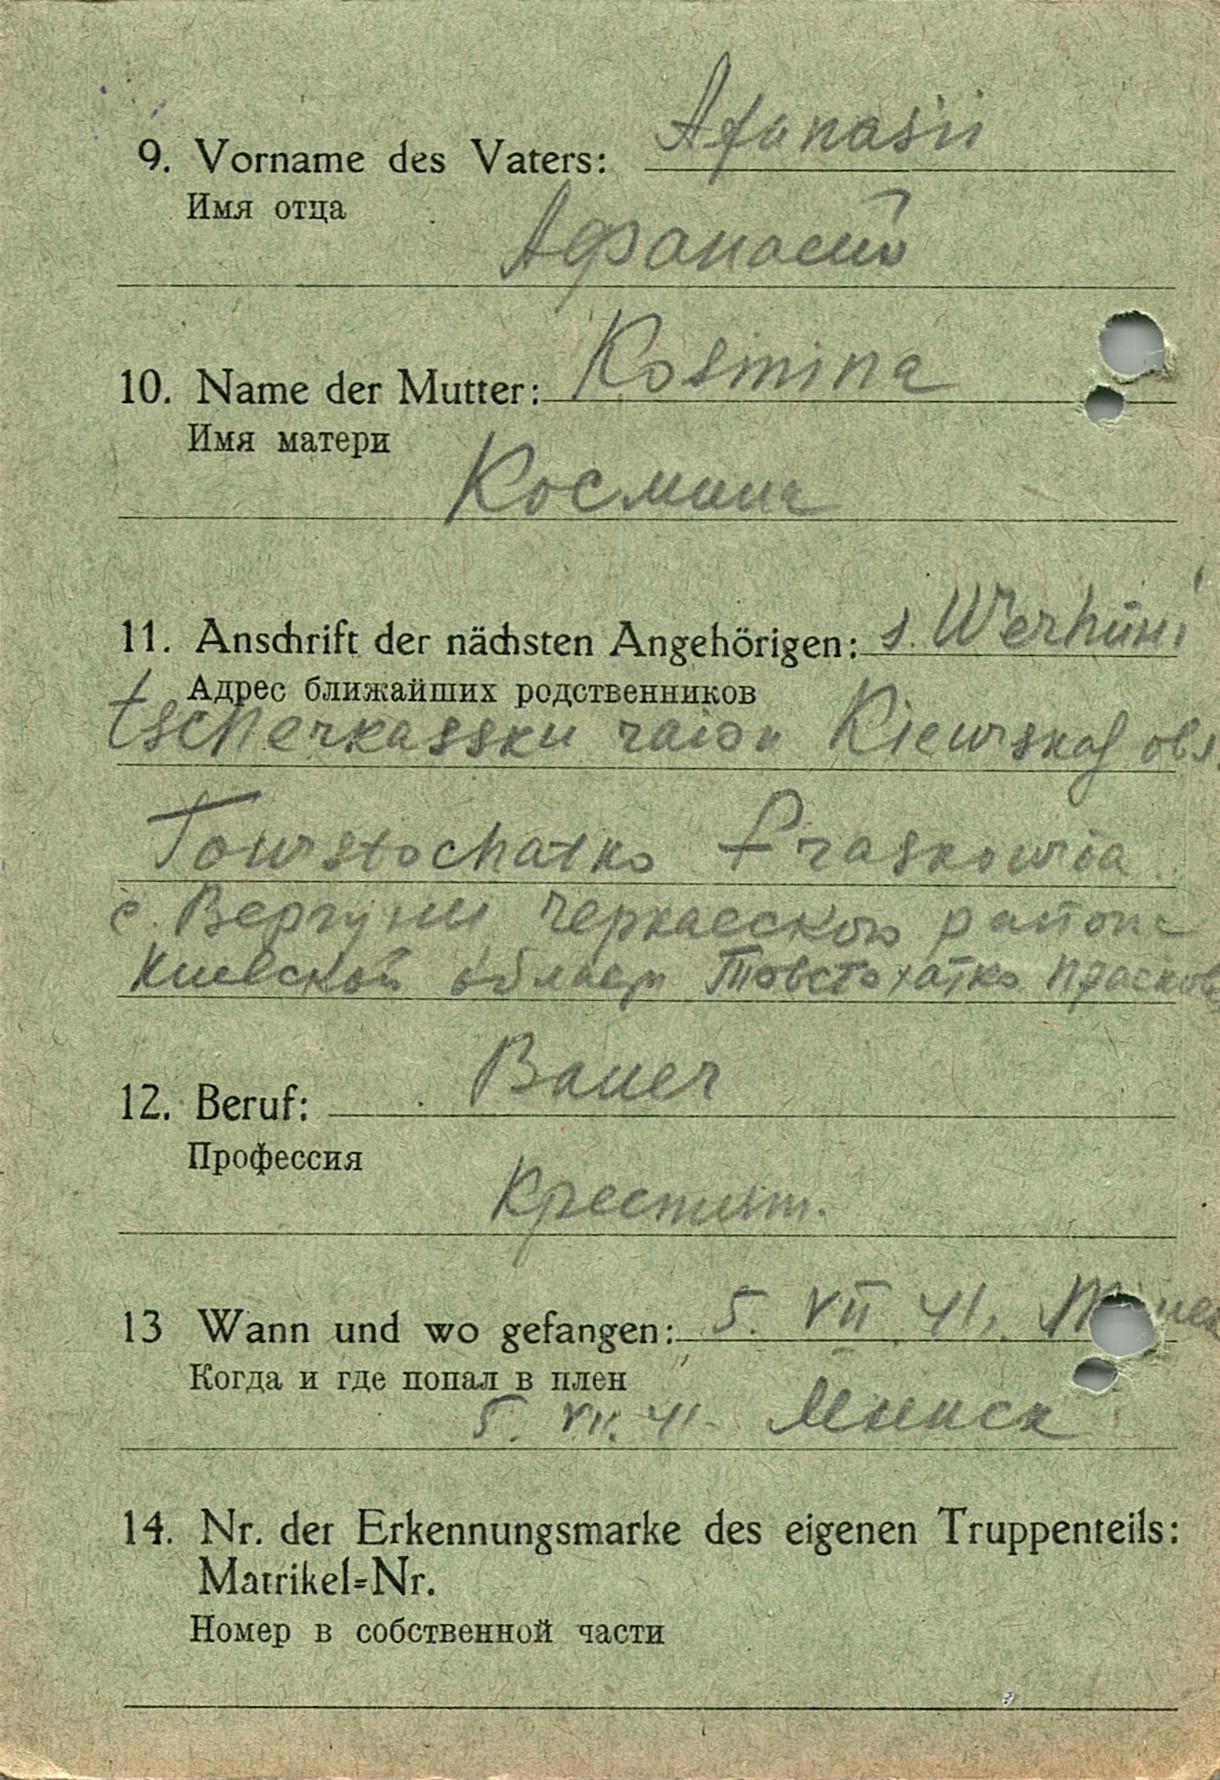 9. Vorname des Vaters: Afanasii
Имя отца
Афанасий
10. Name der Mutter: Kosmina
Имя матери
Космина
11. Anschrift der nächsten Angehörigen: s. Werhuni
Адрес ближайших родственников
tscherkassku raion Kiewskaj obl.
Towstochatko Praskowia
с. Вергуни Черкасского района
Киевской Товстохатко Прасков
12. Beruf: Bauer
Профессия
13 Wann und wo gefangen: 5. VII. 41.
Когда и где попал в плен
5. VII. 41. Минск
14. Nr. der Erkennungsmarke des eigenen Truppenteils:
Matrikel=Nr.
Номер в собственной части